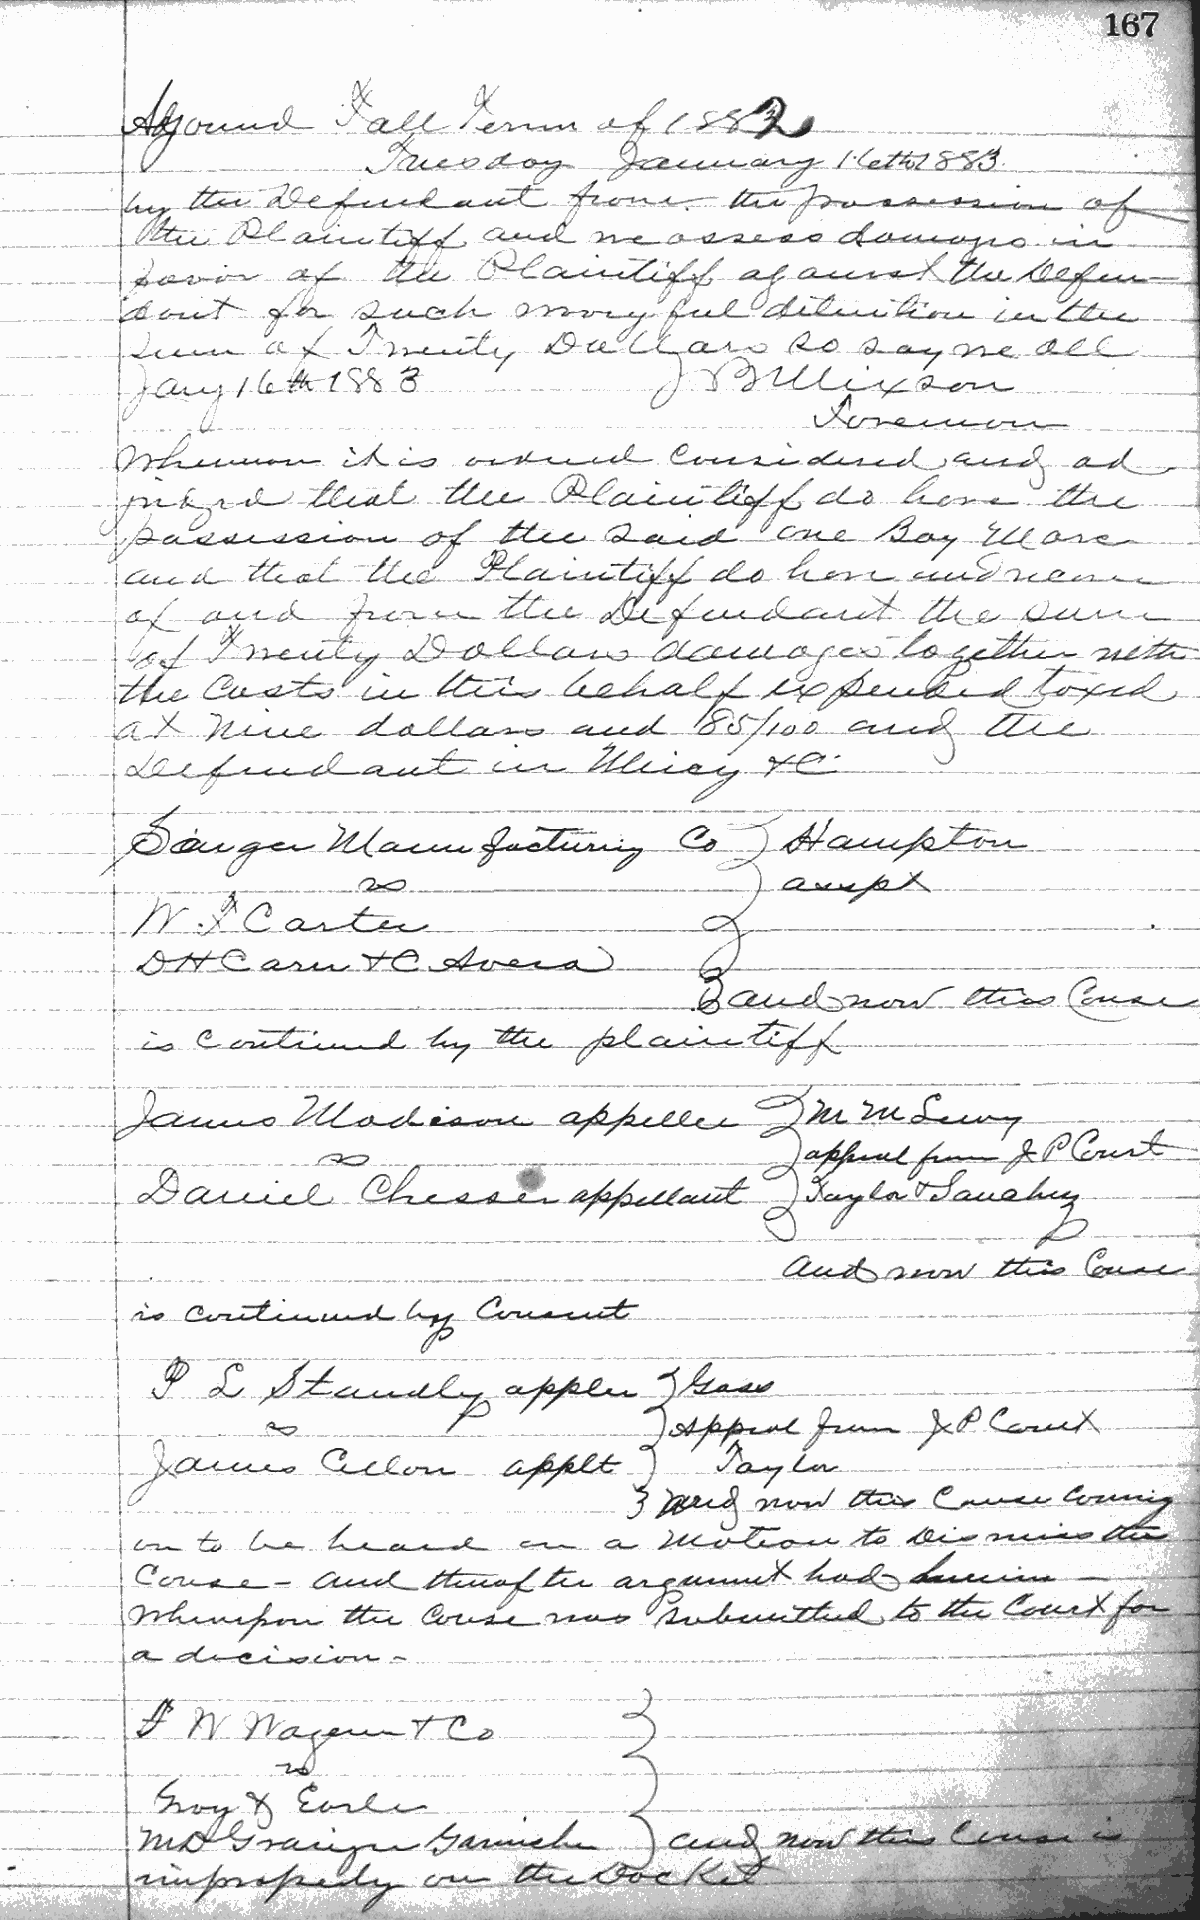 167
Adjourned Fall Term of 1882
Tuesday January 16th 1883
by the Defendant from the possession of
the Plaintiff and we assess damages in
favor of the Plaintiff against the Defen-
dant for such wrongful detention in the
sum of Twenty Dollars so say we all
Jany 16th 1883 J B Mixson
Foreman
Whereupon it is ordered considered and ad
judged that the Plaintiff do have the
possession of the said one Bay Mare
and that the Plaintiff do have and recover
of and from the Defendant the sum
of Twenty Dollars damages together with
the Costs in this behalf expended taxed
at Nine dollars and 85/100 and the
Defendant in Mercy &C
Manufacturing Co } Hampton
vs } assupt
W. F Carter
D H Carn & C Avera
and now this Cause
is continued by the plaintiff
James Madison appellee } M M Lewy
vs } appeal from J P Court
Daniel Chesser appellant } Taylor &
and now this Cause
is continued by Consent
P L Standly applee } Goss
vs } Appeal from J P Court
James Cellon applt } Taylor
and now this Cause coming
on to be heard on a Motion to Dismiss the
Cause - and thereafter argument had herein -
Whereupon the Cause was submitted to the Court for
a decision -
F W Wagener & Co
vs
Groy & Earle
M D Garnishee } and now this Cause is
improperly on the Docket